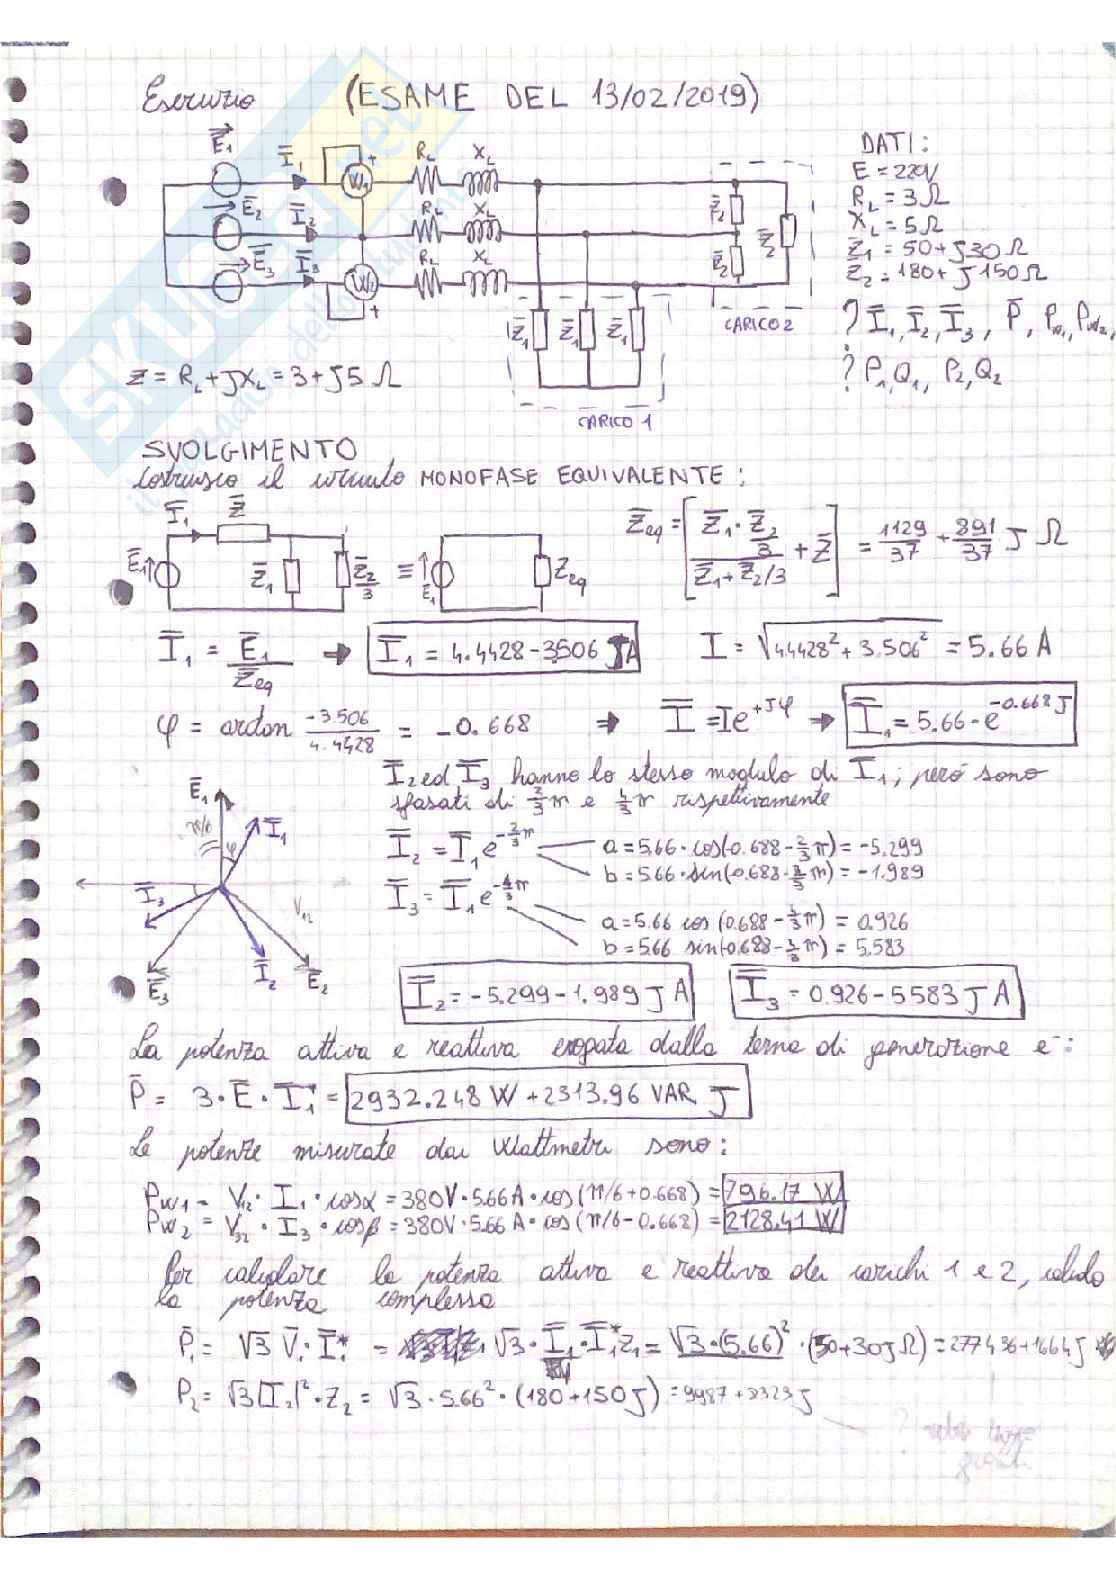 Esercizio (ESAME DEL 13/02/2019)
DATI:
E = 220V
R_L = 3 Ω
X_L = 5 Ω
Z̄1 = 50 + j30 Ω
Z̄2 = 180 + j150 Ω
? Ī1, Ī2, Ī3, P̄, Pw1, Pw2,
? P1, Q1, P2, Q2
Ē1 Ī1 W1 + R_L X_L
Ē2 Ī2 R_L X_L
Ē3 Ī3 W2 + R_L X_L
Z̄2 Z̄2 Z̄2
CARICO 2
Z̄1 Z̄1 Z̄1
CARICO 1
Z̄ = R_L + jX_L = 3 + j5 Ω
SVOLGIMENTO
Costruisco il circuito MONOFASE EQUIVALENTE:
Ī1 Z̄ Ē1 Z̄1 Z̄2/3 ≡ E1 Zeq
Z̄eq = [ (Z̄1 · Z̄2/3) / (Z̄1 + Z̄2/3) + Z̄ ] = 1129/37 + 891/37 J Ω
Ī1 = Ē1/Z̄eq → Ī1 = 4.4428 - 3506 J A I = √(4.4428² + 3.506²) = 5.66 A
φ = arctan -3.506/4.4428 = -0.668 ⇒ Ī = Ie^+Jφ → Ī1 = 5.66 · e^-0.668J
Ī2 ed Ī3 hanno lo stesso modulo di Ī1, però sono
sfasati di 2/3π e 4/3π rispettivamente
Ē1 π/6 φ Ī1 Ī3 V12 Ē3 Ī2 Ē2
Ī2 = Ī1 e^-2/3π a = 5.66 · cos(-0.688 - 2/3π) = -5.299
b = 5.66 · sin(-0.688 - 2/3π) = -1.989
Ī3 = Ī1 e^-4/3π a = 5.66 cos(0.688 - 4/3π) = 0.926
b = 5.66 sin(-0.688 - 4/3π) = 5.583
Ī2 = -5.299 - 1.989 J A Ī3 = 0.926 - 5583 J A
La potenza attiva e reattiva erogata dalla terna di generazione è:
P̄ = 3 · Ē · Ī1* = 2932.248 W + 2313.96 VAR J
Le potenze misurate dai Wattmetri sono:
Pw1 = V12 · I1 · cosα = 380V · 5.66 A · cos(π/6 + 0.668) = 796.17 W
Pw2 = V32 · I3 · cosβ = 380V · 5.66 A · cos(π/6 - 0.668) = 2128.41 W
Per calcolare la potenza attiva e reattiva dei carichi 1 e 2, calcolo
la potenza complessa
P̄1 = √3 V̄1 · Ī1* = √3 · Ī1 · Ī1* Z1 = √3 · (5.66)² · (50 + 30J Ω) = 2774 36 + 1664 J
P2 = √3 |I2|² · Z2 = √3 · 5.66² · (180 + 150 J) = 9987 + 8323 J
?